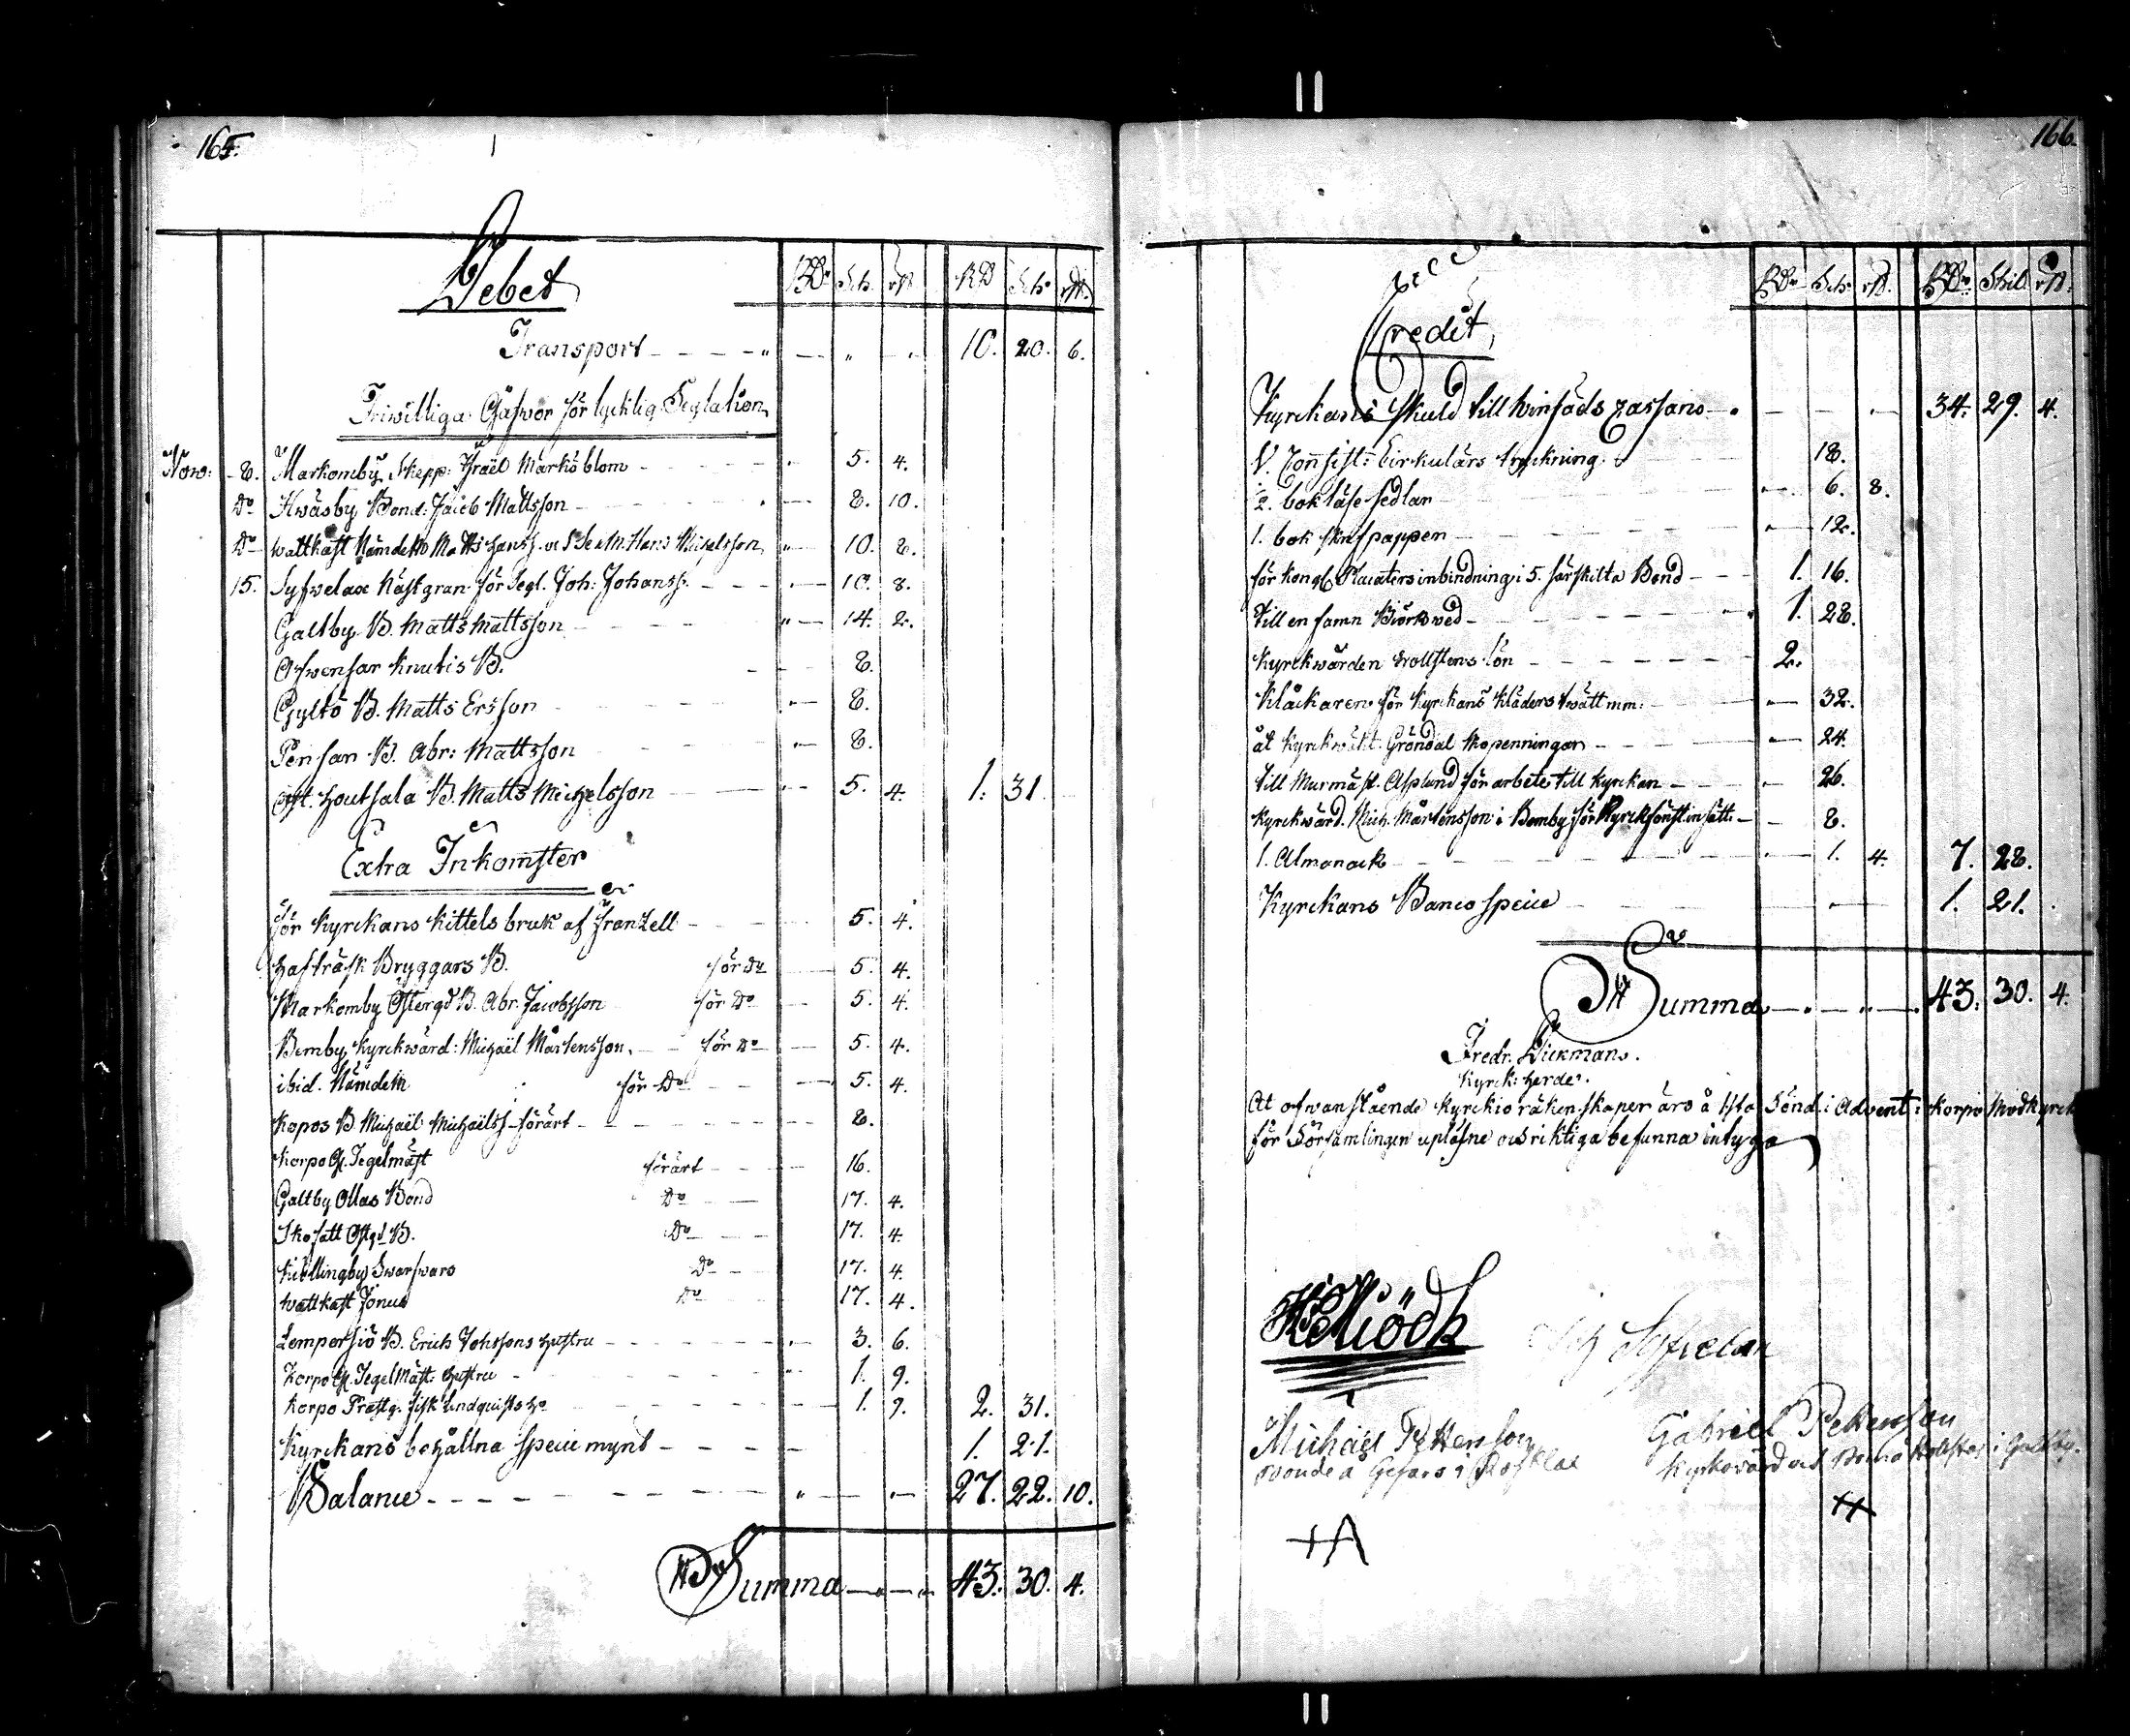 165.
Debet
RD Sch. rst. RD Sch. rst.
Transport 10. 20. 6.
Friwilliga Gåfvor för lycklig Seglation
Now: 8. Markomby Skepp: Israël Markoblom 5. 4.
Do Kwäsby Bond: Jacob Mattsson 8. 10.
Do Wattkast Nämdem Matts Hanss. Hans Michelsson 10. 8.
15. Syfwelax Näst gran. för Segl. Joh: Johanss. 10. 8.
Galtby B. Matts Mattsson 14. 2.
Ofwensar Knutis B. 8.
Gyltö B. Matts Ersson 8.
Pensar B. Abr: Mattsson 8.
Houtsala B. Matts Michelsson 5. 4. 1. 31.
Extra Inkomster
för Kyrckans Kittels bruk af Franzell 5. 4.
Hafträsk Bryggars B. för Do 5. 4.
Markomby Östergd B. Abr. Jacobsson för Do 5. 4.
Bemby Kyrckwärd: Michaël Mårtensson för Do 5. 4.
ibid. Nämdem för Do 5. 4.
Kopos B. Michaël Michaëlss. förärt 8.
Korpo G. Tegelmäst förärt 16.
Galtby Ollas Bond Do 17. 4.
Skofatt Ostgd B. Do 17. 4.
Kiällingby Swarfwars Do 17. 4.
Wattkast Jonus Do 17. 4.
Lempersiö B. Erich Johssons Hustru 3. 6.
Korpo G. Tegelmäst: Hustru 1. 9.
Korpo Prästg. Fisk Lindquists Ho 1. 9. 2. 31.
Kyrckans behållna Specie mynt 1. 21.
Balance 27. 22. 10.
Summa 43. 30. 4.
166.
Credit
RD Sch: rst. RD Skil rst.
Kyrckans Skuld till Winsäds Cassans 34. 29. 4.
V. Consist: Cirkulärs tryckning 18.
2. bok läse sedlar 6. 8.
1. bok skrifpappen 12.
för Kongl. Placaters inbindning i 5. särskilta Band 1. 16.
till en famn Biörkwed 1. 28.
Kyrckwärden Trollstens lön 2.
Klåckaren för Kyrckans Kläders twätt mm: 32.
åt Kyrckwäkt. Gröndal Skopenningar 24.
till Murmäst. Asplund för arbete till Kyrckan 26.
Kyrckwärd. Mich. Mårtensson i Bemby för Kyrckfönst insätt. 8.
1. Almanack 1. 4. 7. 28.
Kyrckans Banco Specie 1. 21.
Summa 43. 30. 4.
Fredr. Dickmans.
Kyrck: Herde.
At ofwanstående Kyrckio räkenskaper äro å 1sta Sönd. i Advent i Korpo Modkyrck
för Församlingen upläsne och riktiga befunna intyga
Michaël Pettersson
Gabriel Pettersson
+A